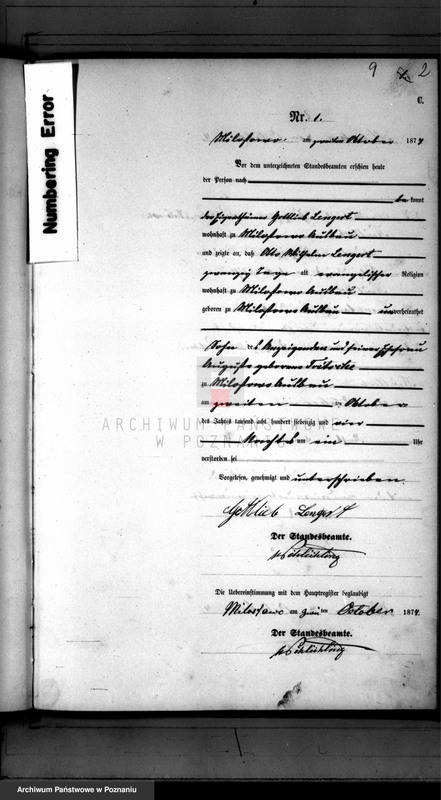 9 2 2
C.
Nr. 1.
Milostowo am zweiten Oktober 1874
Vor dem unterzeichneten Standesbeamten erschien heute
der Person nach
bekannt
der Eigenthümer Gottlieb Lengert
wohnhaft zu Milostowo Ausbau
und zeigte an, daß Otto Wilhelm Lengert
zwanzig Tage alt evangelischer Religion
wohnhaft zu Milostowo Ausbau
geboren zu Milostowo Ausbau unverheirathet
Sohn des Anzeigenden und seiner Ehefrau
Auguste geborene
zu Milostowo Ausbau
am zweiten Oktober
des Jahres tausend acht hundert siebenzig und vier
Nachts um ein Uhr
verstorben sei
Vorgelesen, genehmigt und unterschrieben.
Gottlieb Lengert
Der Standesbeamte.
Die Uebereinstimmung mit dem Hauptregister beglaubigt
Milostowo am zweiten October 1874.
Der Standesbeamte.
Numbering Error
ARCHIWUM PAŃSTWOWE
W POZNANIU
Archiwum Państwowe w Poznaniu